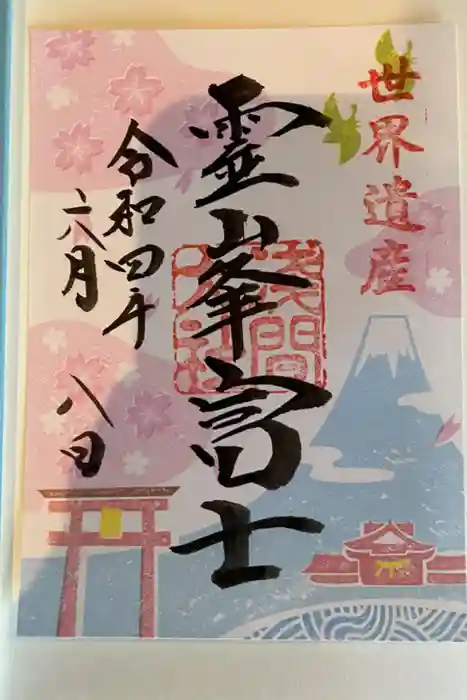 世界遺産
霊峯富士
淺間
大社
令和四年
六月
八日